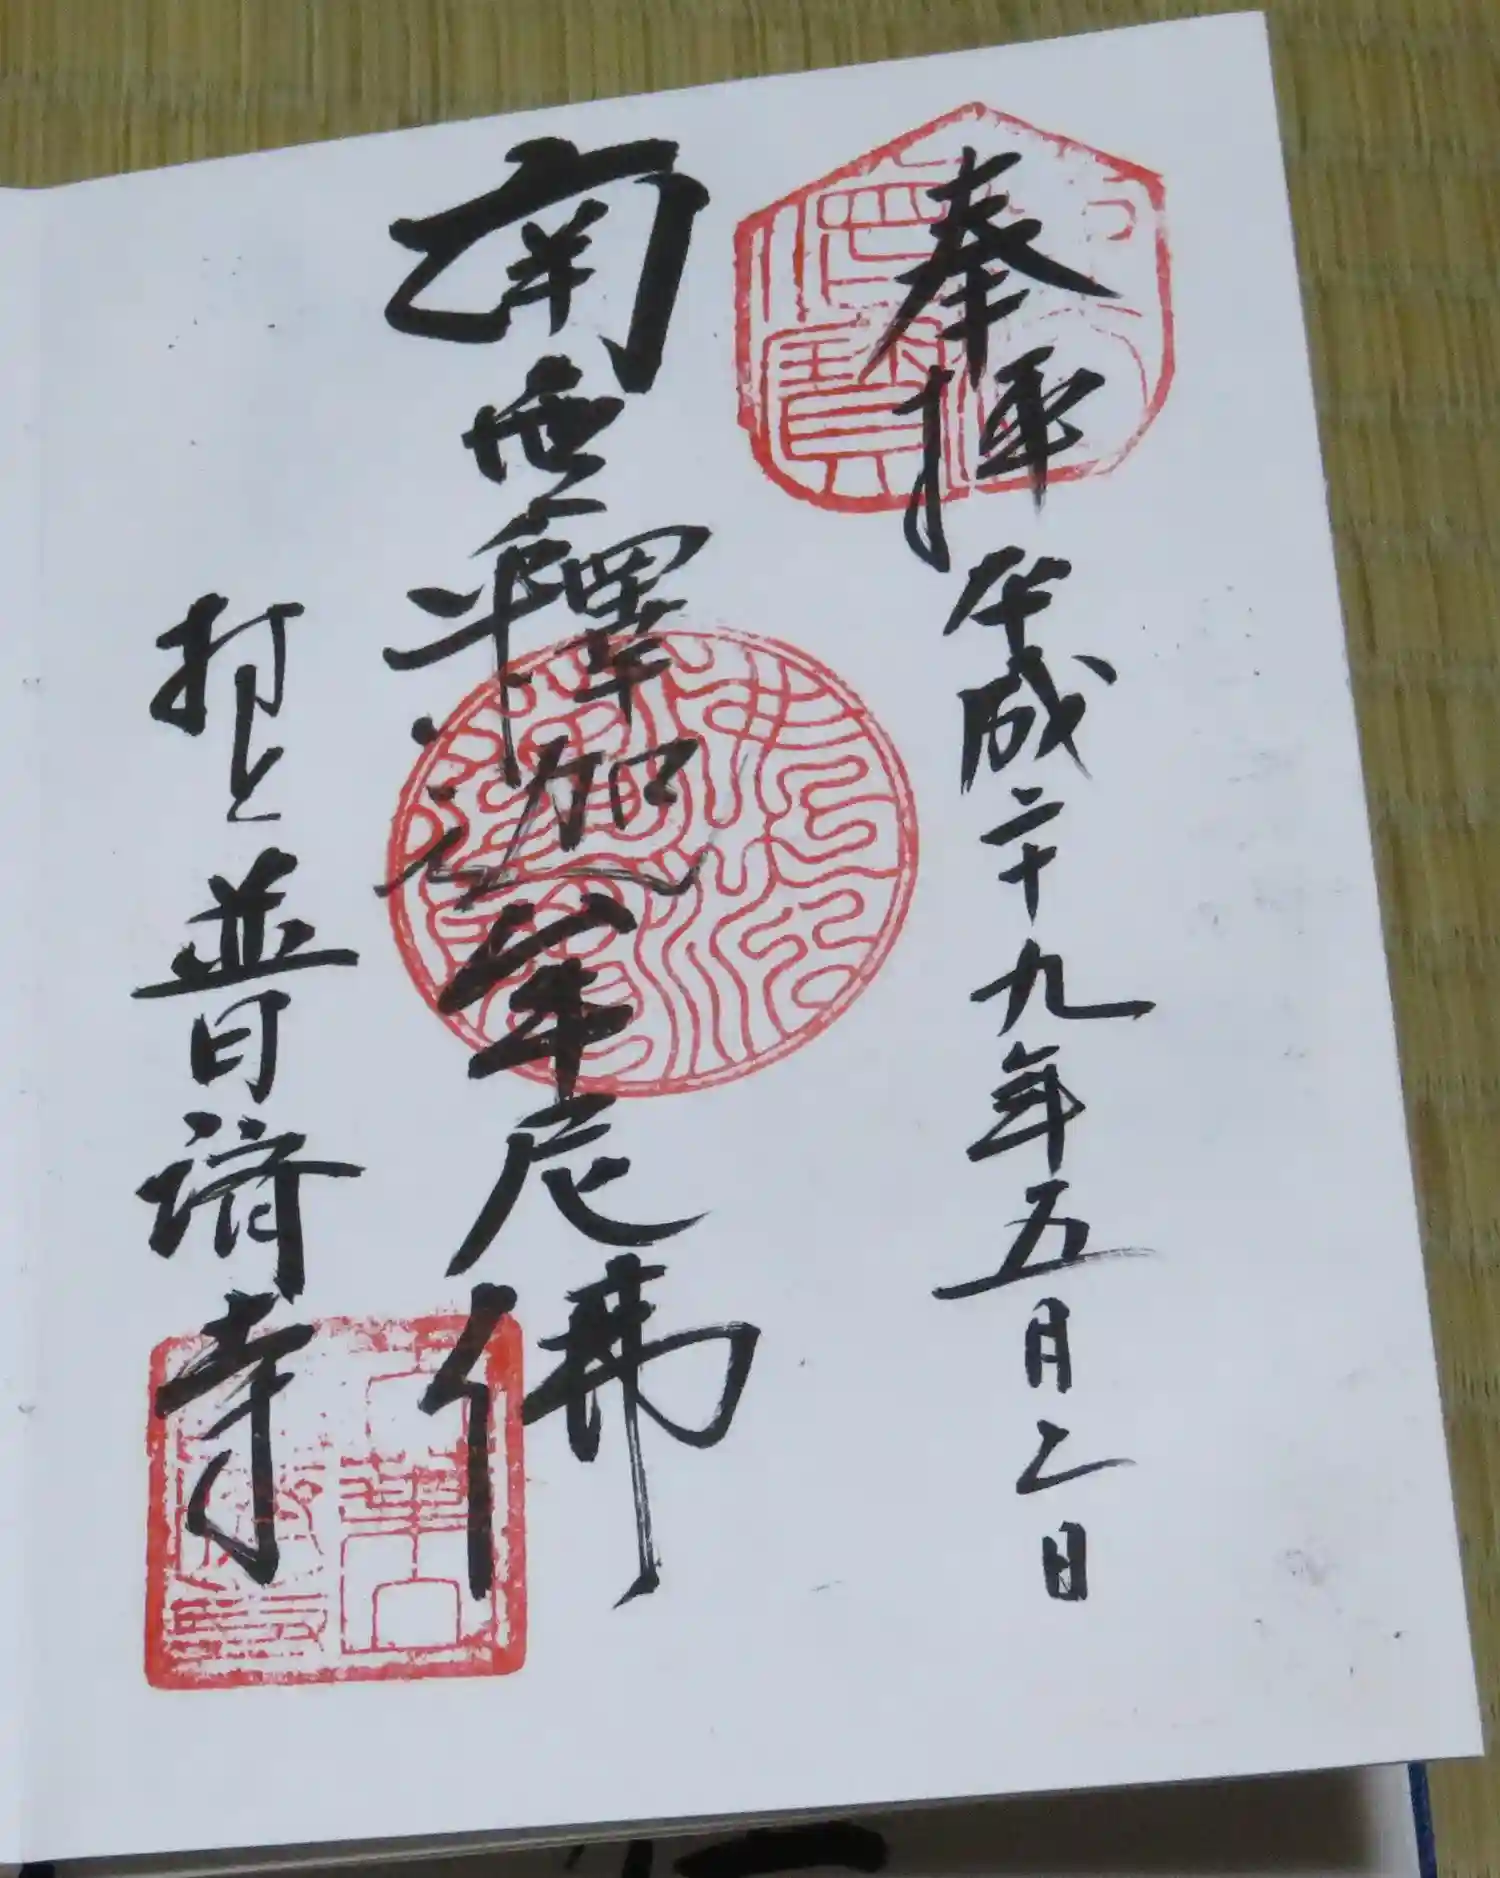 奉拝 平成二十九年五月二日
南無釋迦牟尼佛
村上 普済寺